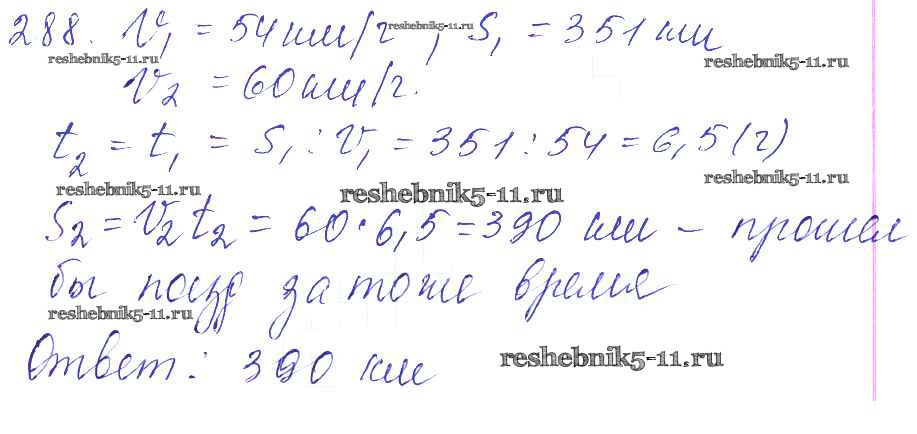 288. V₁ = 54 км/г, S₁ = 351 км
reshebnik5-11.ru
reshebnik5-11.ru
reshebnik5-11.ru
V₂ = 60 км/г.
t₂ = t₁ = S₁ : V₁ = 351 : 54 = 6,5 (г)
reshebnik5-11.ru
reshebnik5-11.ru
reshebnik5-11.ru
S₂ = V₂ t₂ = 60 · 6,5 = 390 км – прошел
бы поезд за тоже время
reshebnik5-11.ru
Ответ: 390 км
reshebnik5-11.ru